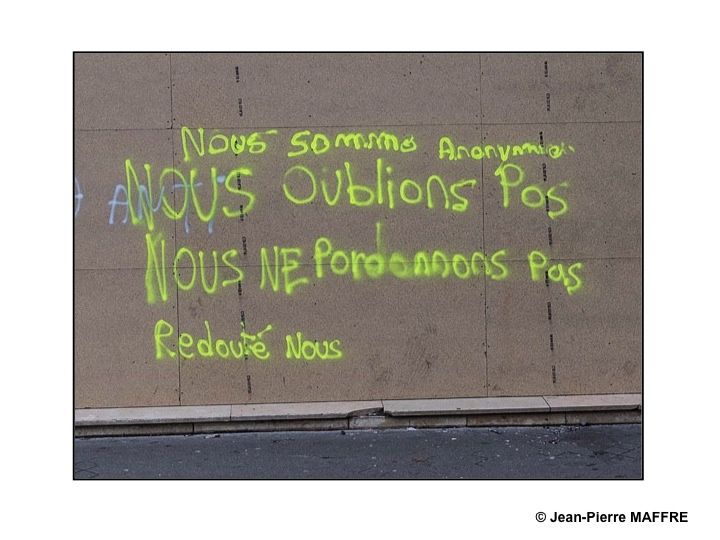 Nous somme Anonymie.
NOUS Oublions Pas
NOUS NE Pardonnons Pas
Redouté Nous
© Jean-Pierre MAFFRE